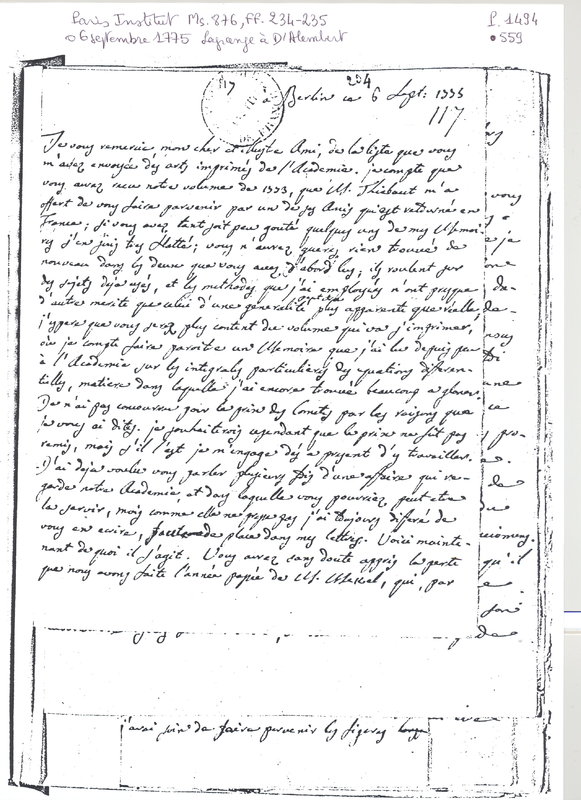 Paris Institut Ms. 876, ff. 234-235 P. 1494
06 septembre 1775 Lagrange à D'Alembert 559
117 234
à Berlin ce 6 Sept: 1775
117
Je vous remercie mon cher et illustre Ami, de la liste que vous
m'avez envoyée des arts imprimés de l'Academie. je compte que
vous avez recu notre volume de 1773, que M. Thiebaut m'a
offert de vous faire parvenir par un de ses Amis qui est retourné en
France; si vous avez tant soit peu gouté quelques uns de mes Memoi-
res j'en suis tres flatté; vous n'aurez gueres rien trouvé de
nouveau dans les deux que vous avez d'abord lus; ils roulent sur
des sujets deja usés, et les methodes que j'ai employées n'ont presque
d'autre merite que celui d'une generalité plus apparente que réelle
j'espere que vous serez plus content du volume qui va s'imprimer,
où je compte faire paroitre un Memoire que j'ai lu depuis peu
à l'Academie sur les integrales particulieres des equations differen-
tielles, matiere dans laquelle j'ai encore trouvé beaucoup a glaner.
Je n'ai pas concourru pour le prix des Cometes par les raisons que
je vous ai dites. je souhaiterois cependant que le prix ne fut pas
remis, mais s'il l'est je m'engage dès a present d'y travailler.
J'ai deja voulu vous parler plusieurs fois d'une affaire qui re-
garde notre Academie, et dans laquelle vous pourriez peut etre
la servir, mais comme elle ne presse pas j'ai toujours differé de
vous en ecrire, faute de place dans mes lettres. Voici mainte-
nant de quoi il s'agit. Vous aurez sans doute appris la perte
que nous avons faite l'année passée de M. Meckel, qui, par
vous
je
de-
nous
une
ce
pro-
de
qu'il
j'aurai soin de faire parvenir les figures